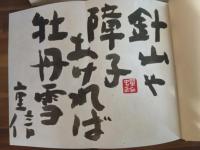 針山や
障子あければ
牡丹雪
重信